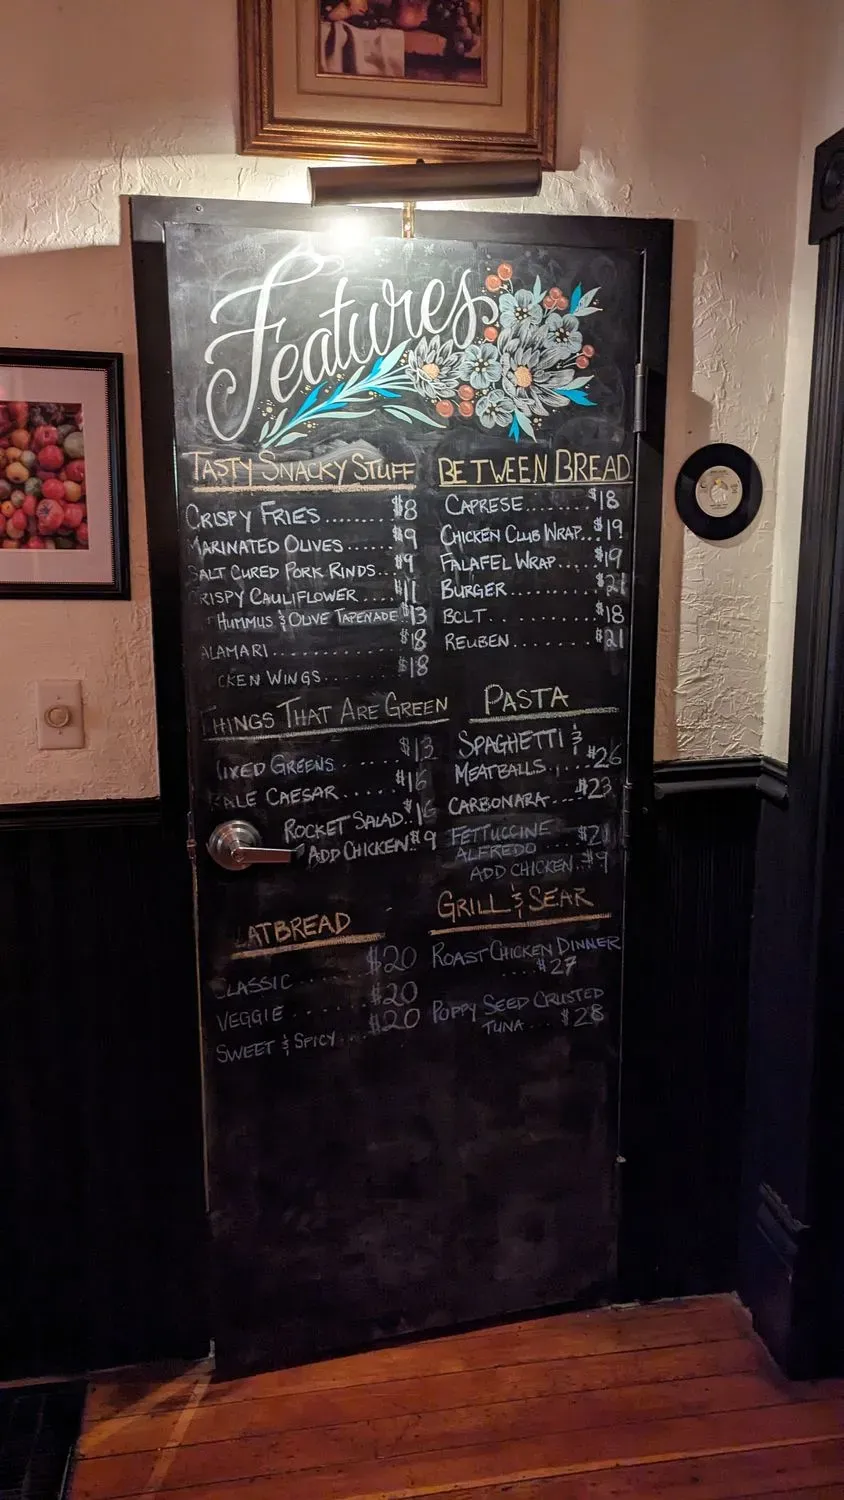 Features
TASTY SNACKY STUFF
CRISPY FRIES.......... $8
MARINATED OLIVES...... $9
SALT CURED PORK RINDS... $9
CRISPY CAULIFLOWER..... $11
HUMMUS & OLIVE TAPENADE $13
ALAMARI............. $18
CKEN WINGS......... $18
THINGS THAT ARE GREEN
MIXED GREENS...... $13
KALE CAESAR...... $16
ROCKET SALAD.. $16
ADD CHICKEN.. $9
ATBREAD
CLASSIC....... $20
VEGGIE....... $20
SWEET & SPICY.... $20
BETWEEN BREAD
CAPRESE........ $18
CHICKEN CLUB WRAP... $19
FALAFEL WRAP..... $19
BURGER.......... $21
BCLT.......... $18
REUBEN........ $21
PASTA
SPAGHETTI &
MEATBALLS..... $26
CARBONARA.... $23
FETTUCCINE
ALFREDO.... $21
ADD CHICKEN.. $9
GRILL & SEAR
ROAST CHICKEN DINNER
.... $27
POPPY SEED CRUSTED
TUNA... $28